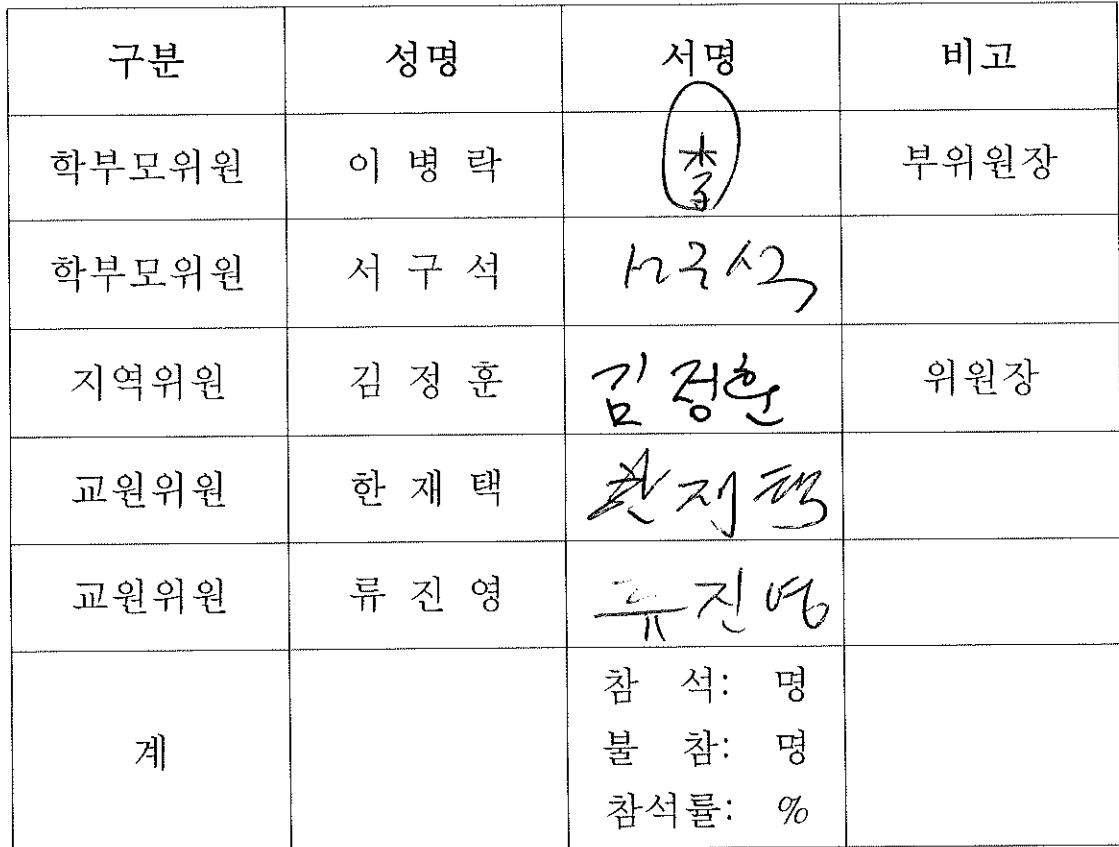 구분 성명 서명 비고
학부모위원 이 병 락 李 부위원장
학부모위원 서 구 석 서구석
지역위원 김 정 훈 김정훈 위원장
교원위원 한 재 택 한재택
교원위원 류 진 영 류진영
계 참 석: 명
불 참: 명
참석률: %